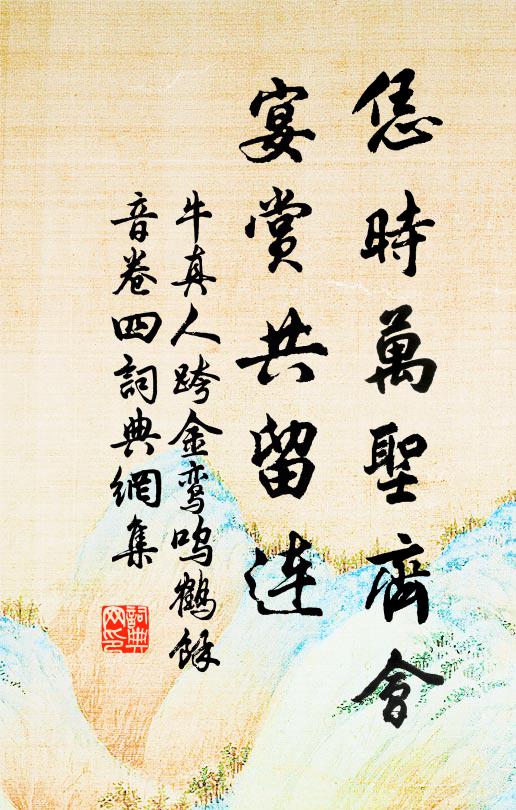 恁時萬聖齊會
宴賞共留连
牛真人跨金鸾鸣鶴餘
音卷四詞典網集
詞典
网印